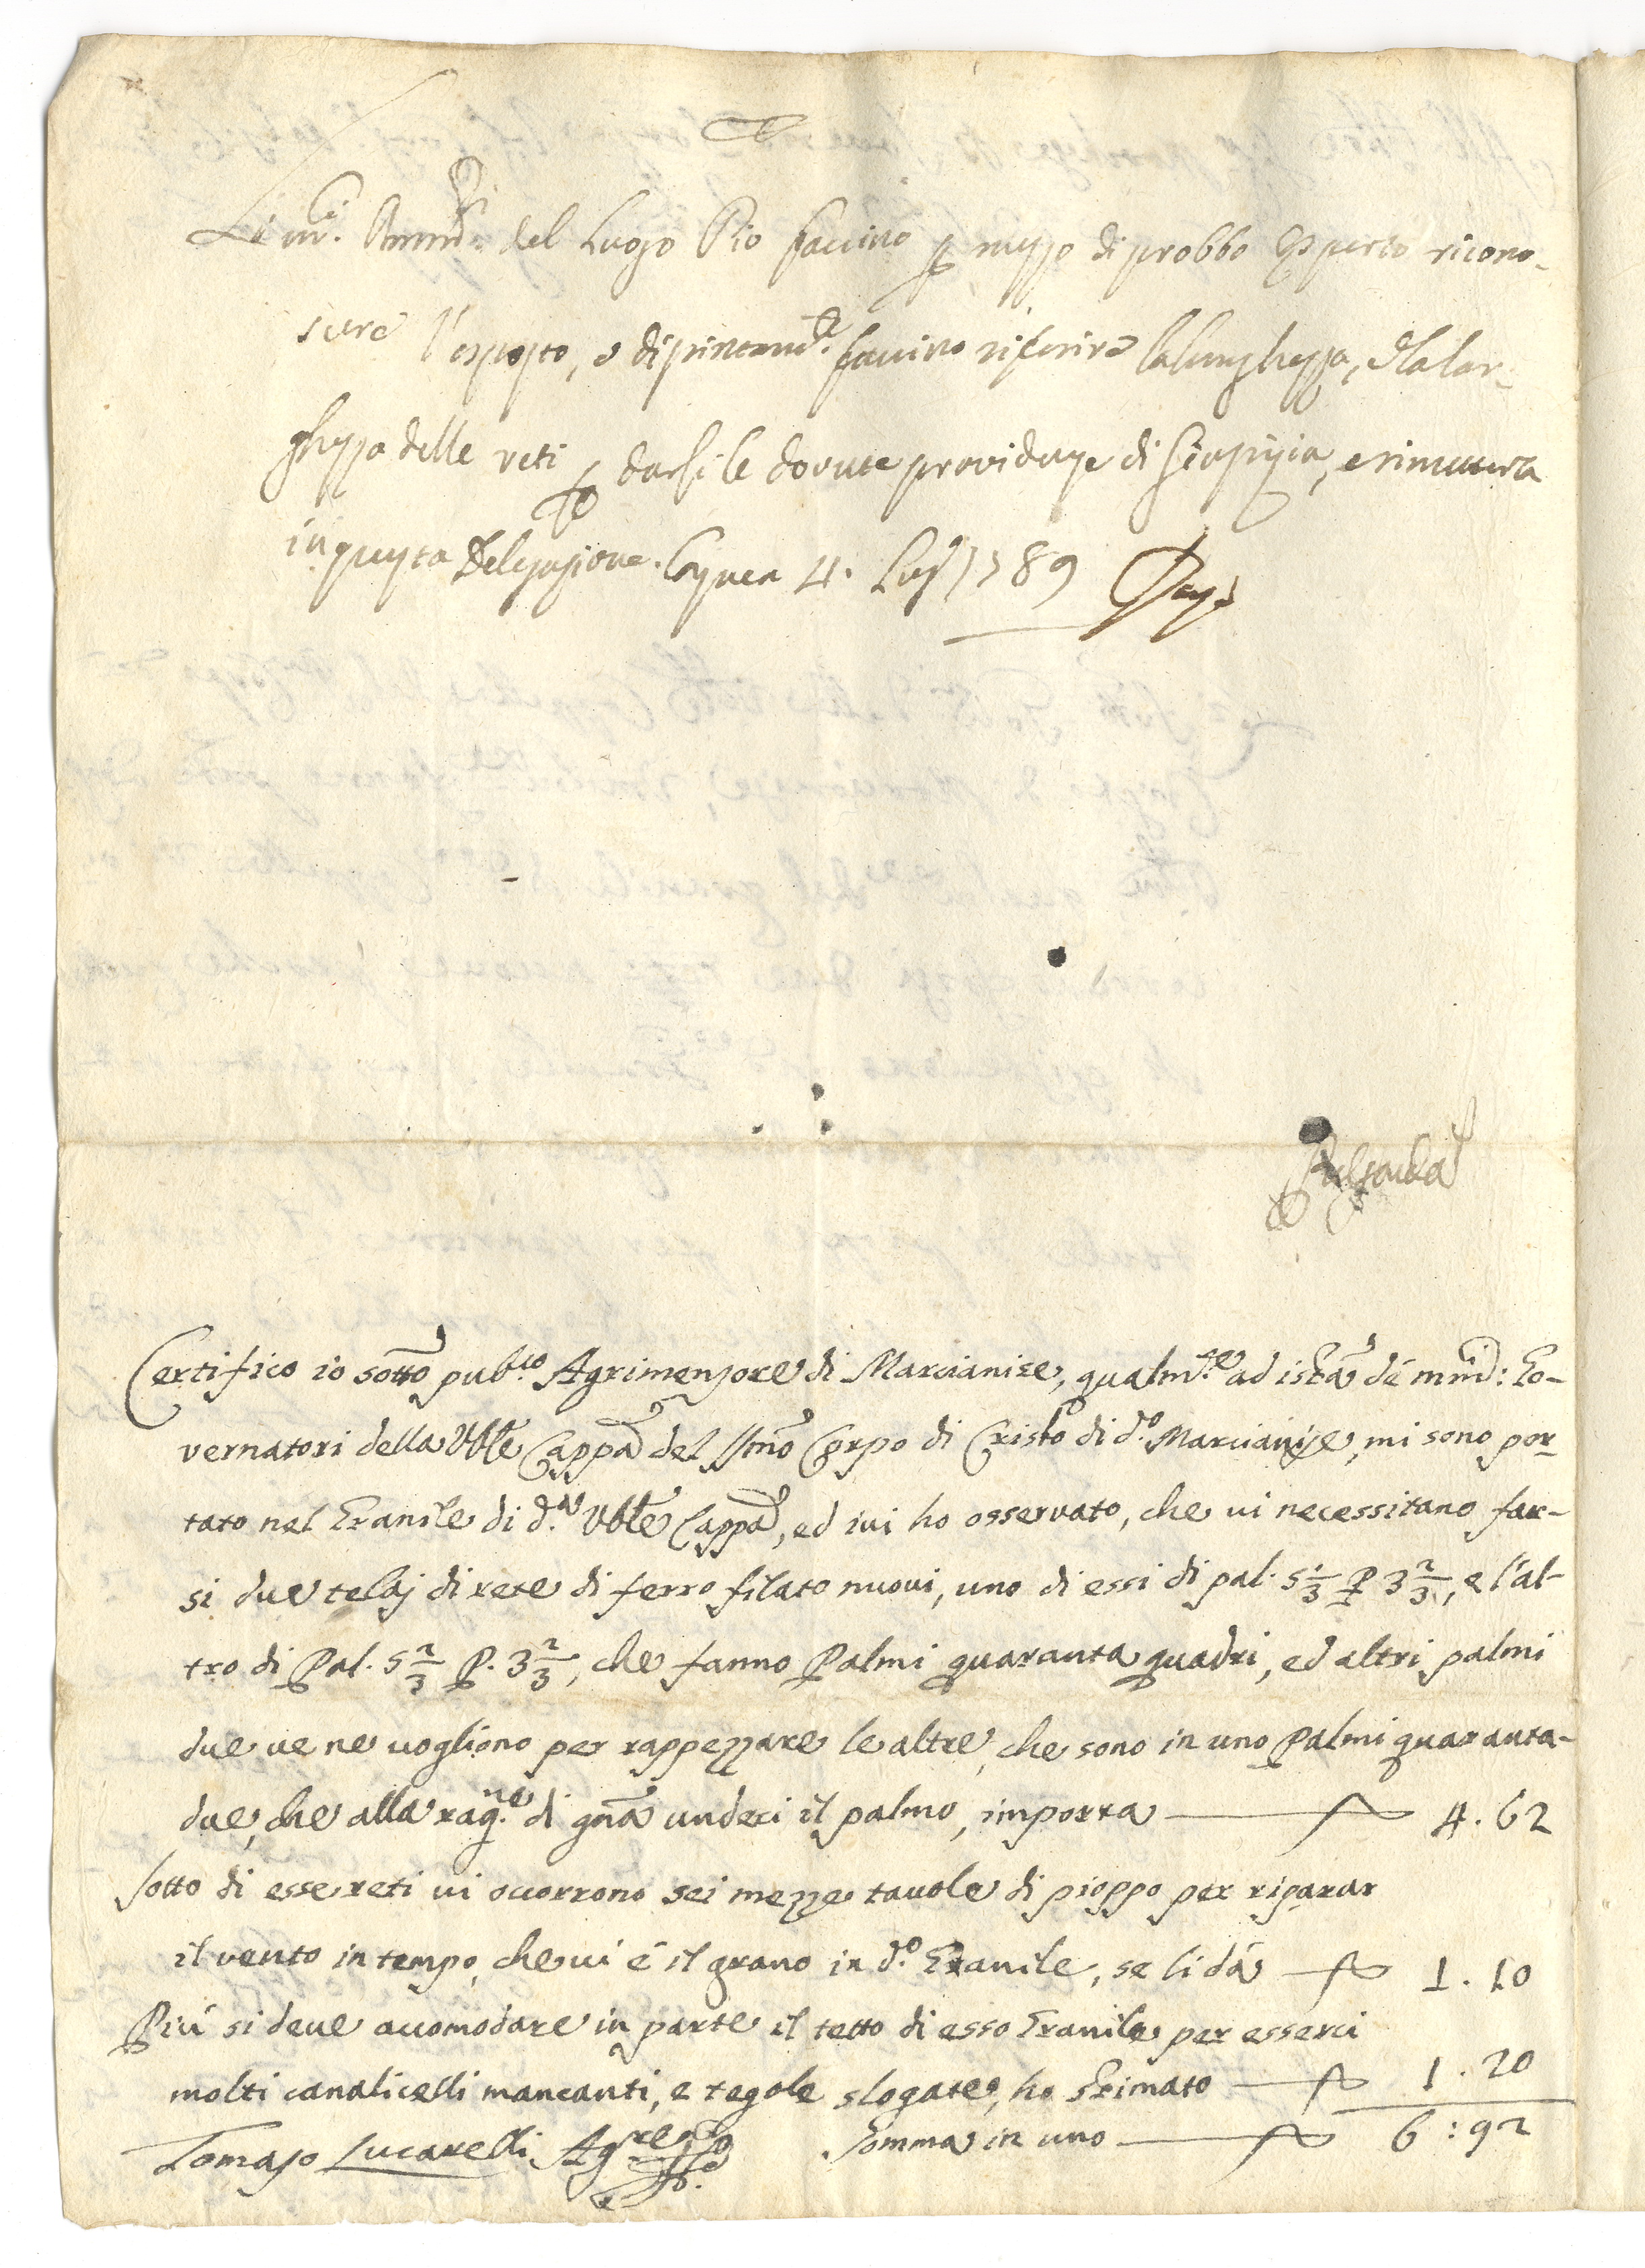 Li mci. Ammri. del Luogo Pio faccino p mezzo di probbo Esperto ricono-
scere l'esposto, e distintamte. faccino riferire la lunghezza, e la lar-
ghezza delle reti p darsi le dovute providenze di Giustizia, e rimettera
in questa Delegazione. Capua 4. Lug. 1789
Certifico io sotto pubco. Agrimensore di Marcianise, qualmte. ad istza de mmci: Go-
vernatori della Vble Cappa del SSmo Corpo di Cristo di do. Marcianise, mi sono por-
tato nel Granile di da. Vble Cappa, ed ivi ho osservato, che vi necessitano far-
si due telaj di rete di ferro filato nuovi, uno di essi di pal. 5 1/3 P 3 2/3, e l'al-
tro di Pal. 5 2/3 P. 3 2/3, che fanno Palmi quaranta quadri, ed altri palmi
due ve ne vogliono per rappezzare le altre, che sono in uno Palmi quaranta-
due, che alla ragne. di gna undeci il palmo, importa 4.62
Sotto di esse reti vi occorrono sei mezze tavole di pioppo per riparar
il vento in tempo, che vi è il grano in do. Granile, se li dà 1.10
Più si deve accomodare in parte il tetto di esso Granile per esserci
molti canalicelli mancanti, e tegole slogate, ho stimato 1.20
Tomaso Lucarelli Agre Somma in uno 6:92